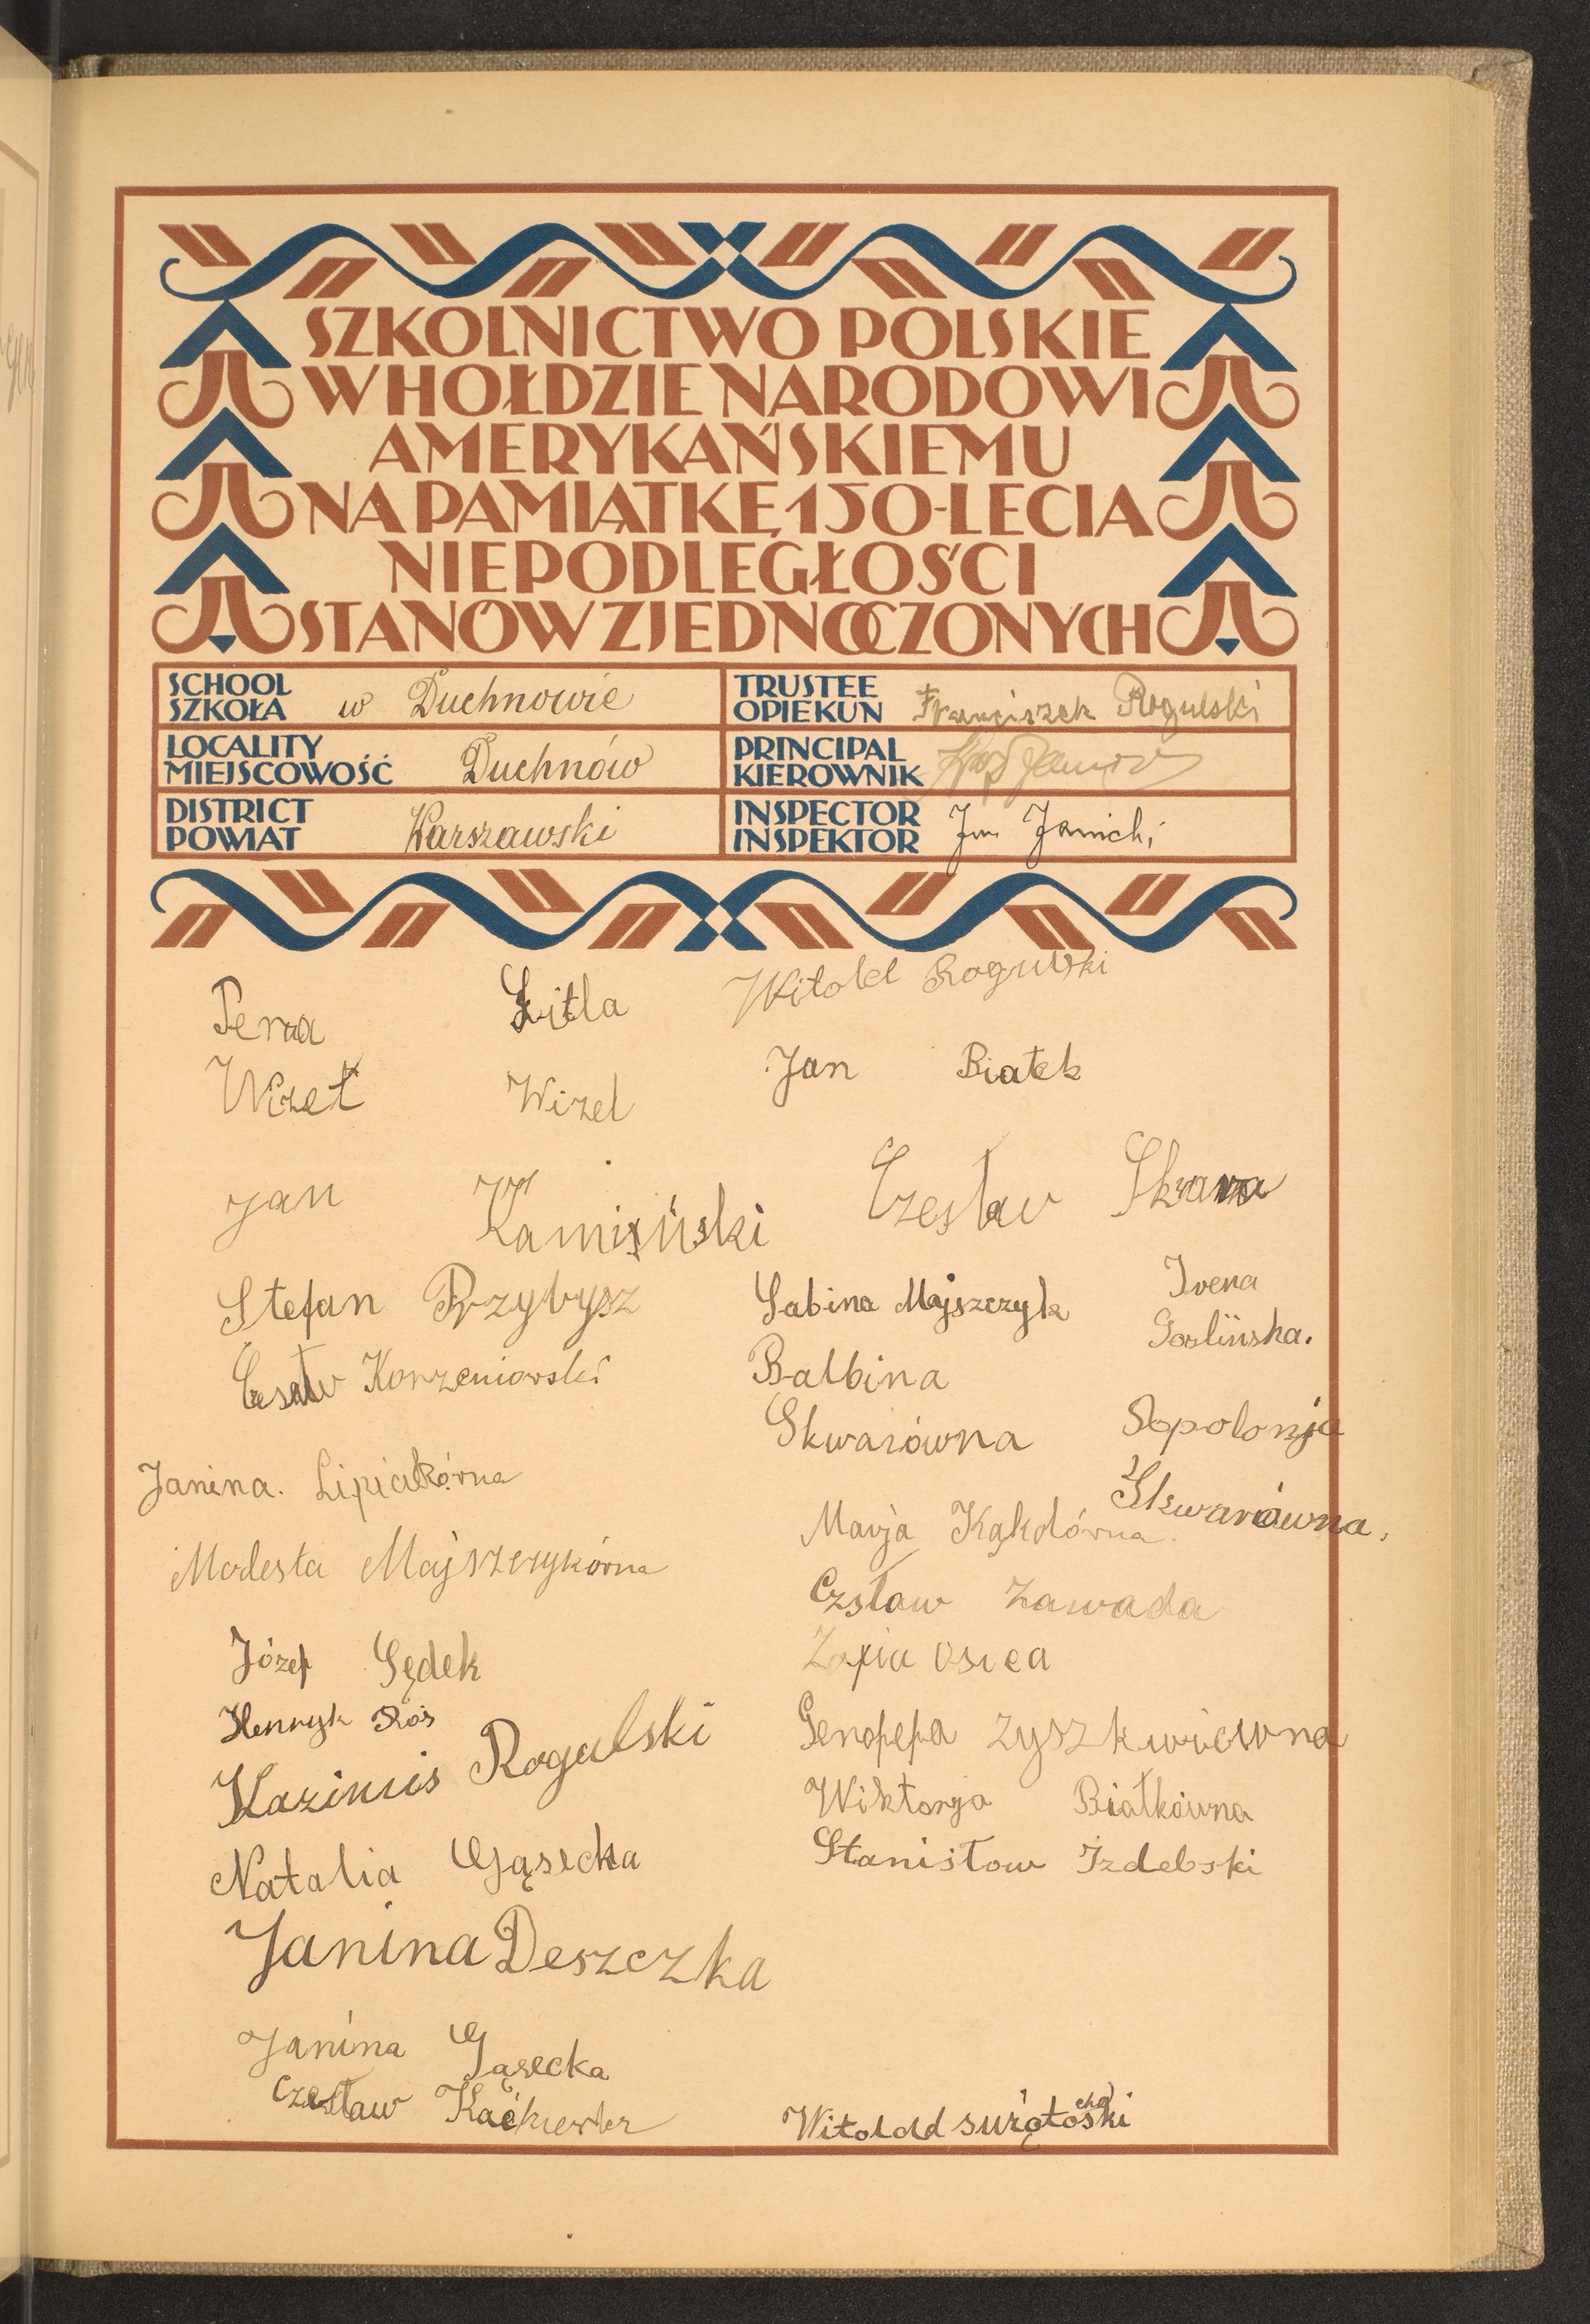 SZKOLNICTWO POLSKIE
W HOŁDZIE NARODOWI
AMERYKAŃSKIEMU
NA PAMIĄTKĘ 150-LECIA
NIEPODLEGŁOŚCI
STANÓW ZJEDNOCZONYCH
SCHOOL
SZKOŁA w Duchnowie
TRUSTEE
OPIEKUN Franciszek Rogulski
LOCALITY
MIEJSCOWOŚĆ Duchnów
PRINCIPAL
KIEROWNIK
DISTRICT
POWIAT Warszawski
INSPECTOR
INSPEKTOR Janicki
Perza Zitla
Witold Rogulski
Wizel Wizel
Jan Białek
Jan Kamiński
Czesław Skwara
Stefan Przybysz
Sabina Majszczyk
Irena
Goslińska.
Korzeniowski
Balbina
Skwarówna
Apolonja
Skwarówna.
Janina. Lipiakówna
Marja Kąkolówna
Modesta Majszczykówna
Czsław Zawada
Józef Gędek
Zofia Osiea
Henryk Roś
Genofefa Zyszkwiewna
Kazimis Rogulski
Wiktorja Białkówna
Natalia Gąsecka
Stanisław Izdebski
Janina Deszczka
Janina Gąsecka
Czesław
Witoldd